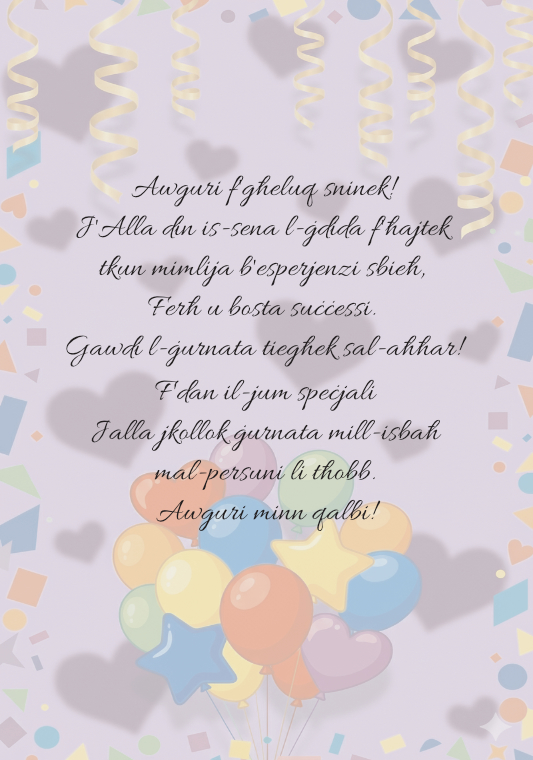 Awguri f'għeluq sninek!
J'Alla din is-sena l-ġdida f'ħajtek
tkun mimlija b'esperjenzi sbieħ,
Ferħ u bosta suċċessi.
Gawdi l-ġurnata tiegħek sal-aħħar!
F'dan il-jum speċjali
Jalla jkollok ġurnata mill-isbaħ
mal-persuni li tħobb.
Awguri minn qalbi!